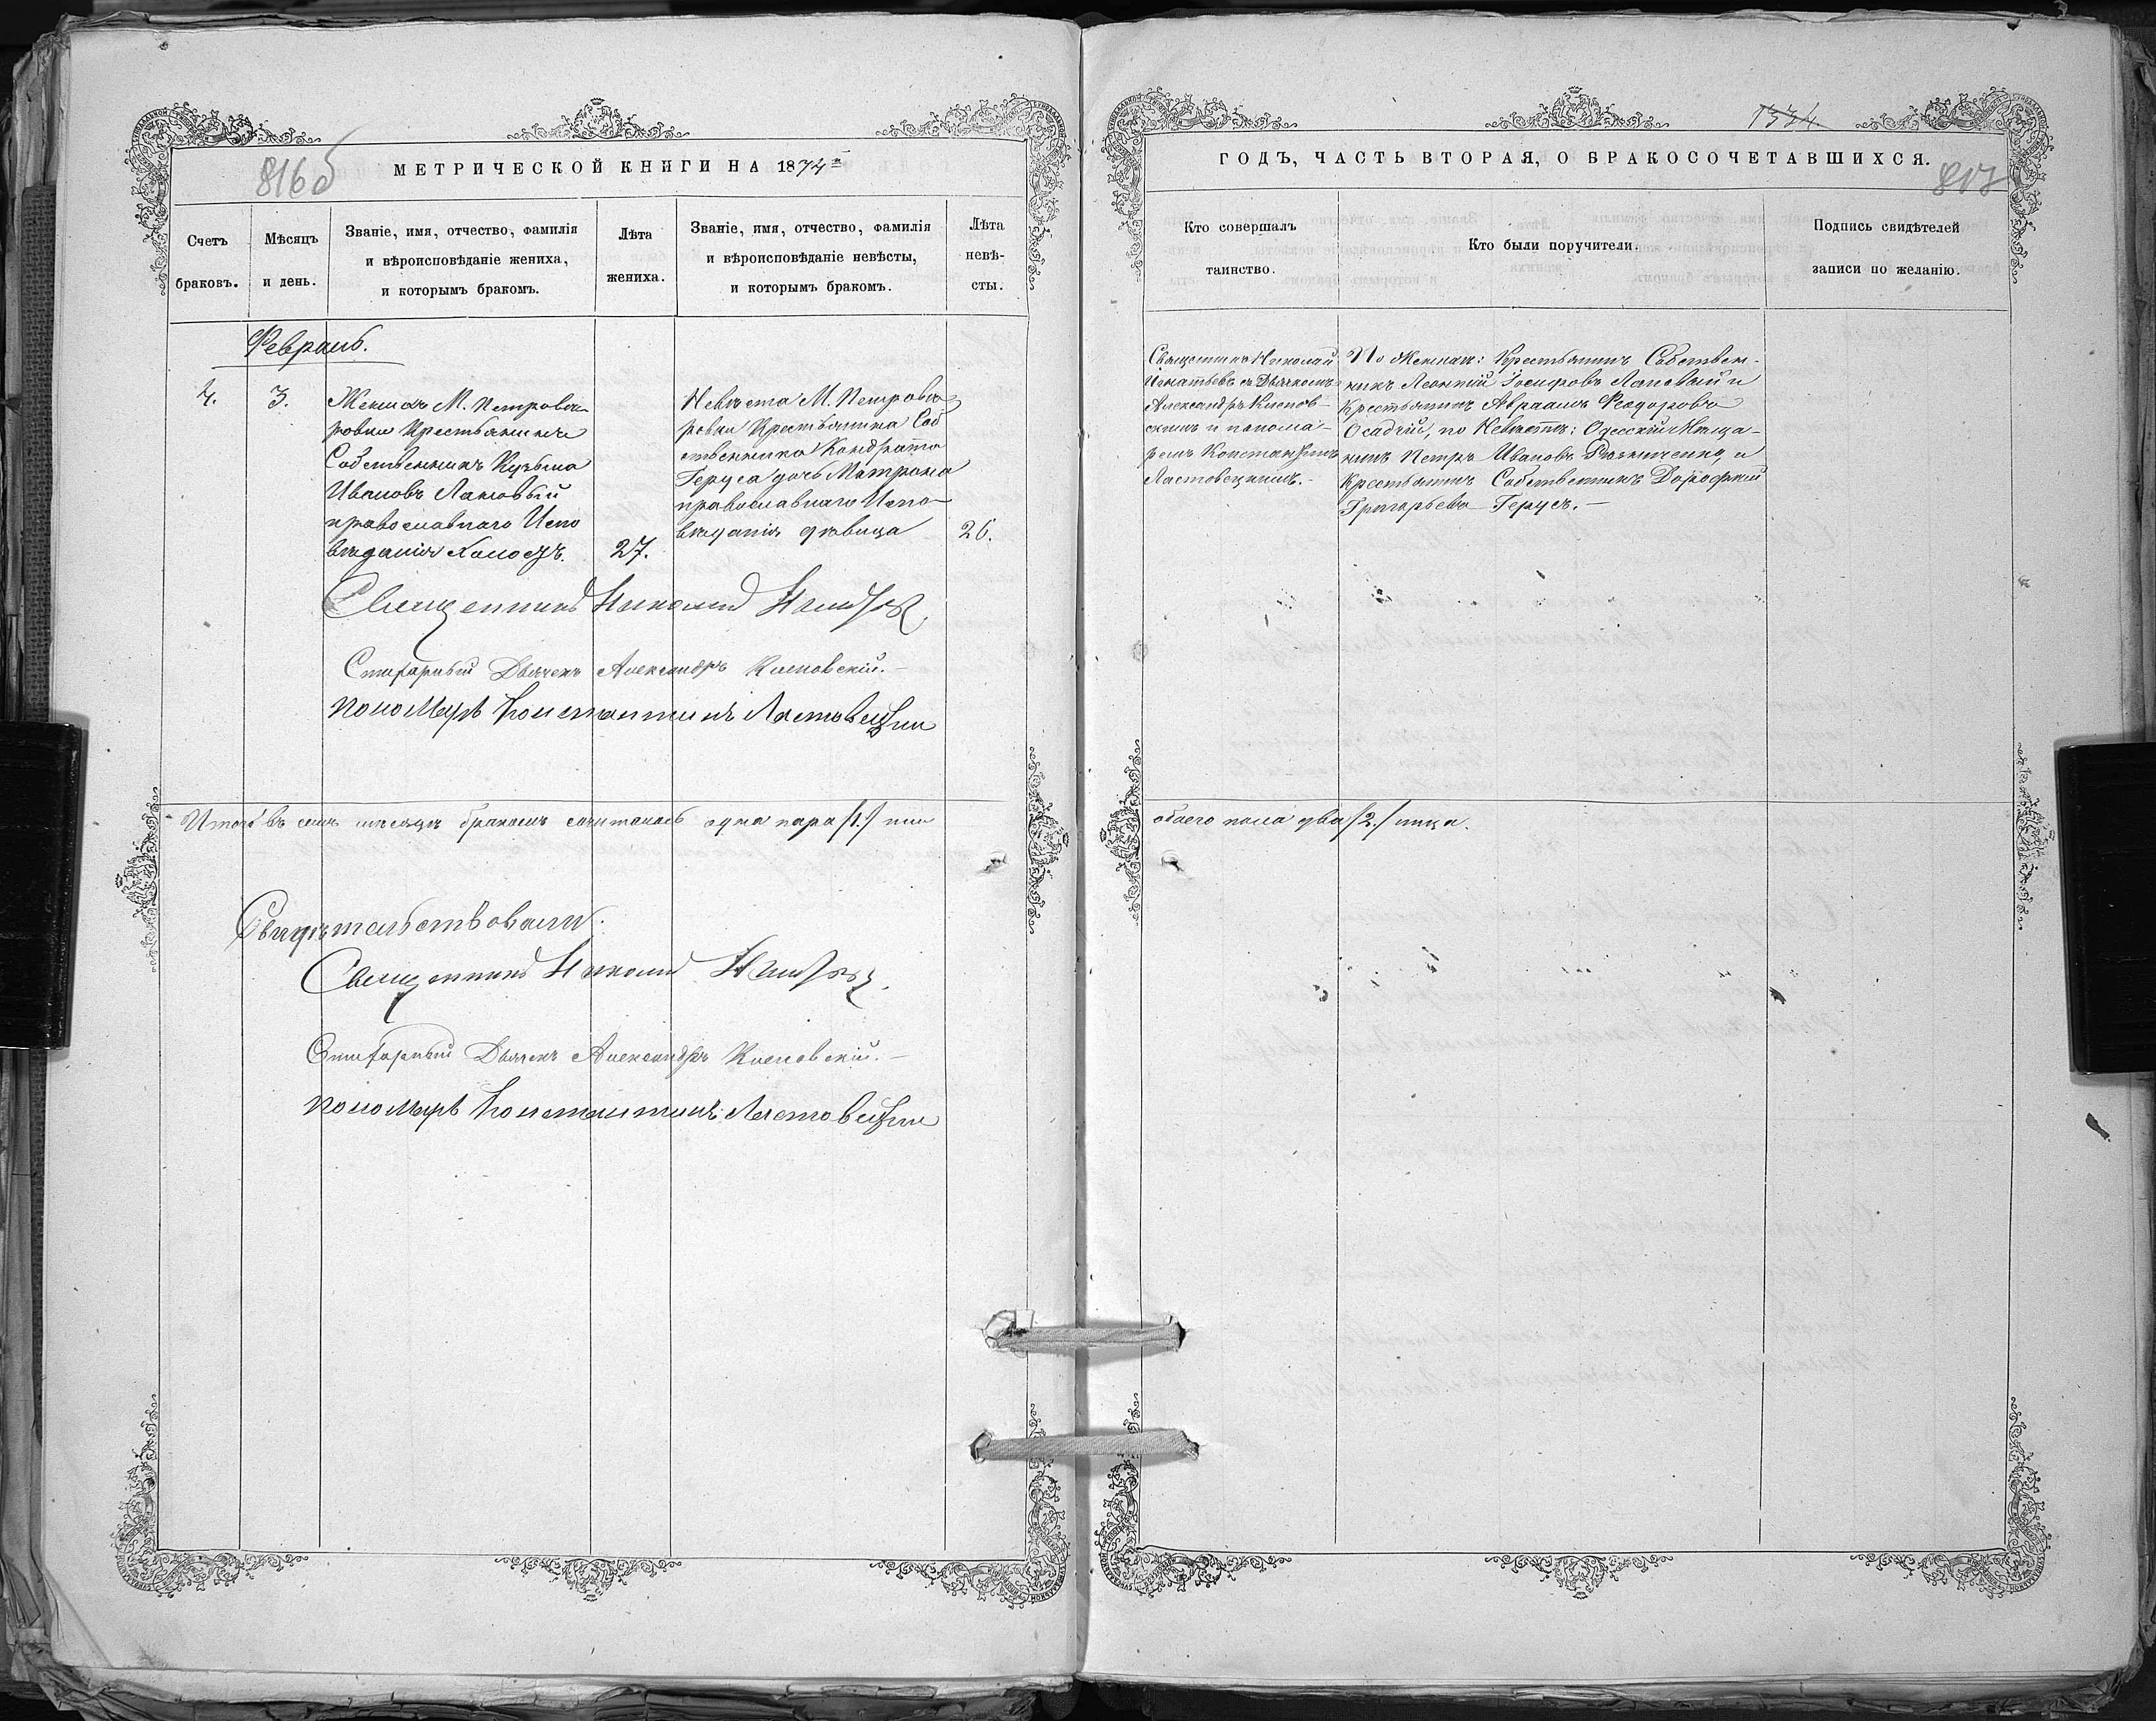 816б
МЕТРИЧЕСКОЙ КНИГИ НА 1874й
Счетъ браковъ.
Мѣсяцъ и день.
Званіе, имя, отчество, фамилія
и вѣроисповѣданіе жениха,
и которымъ бракомъ.
Лѣта жениха.
Званіе, имя, отчество, фамилія
и вѣроисповѣданіе невѣсты,
и которымъ бракомъ.
Лѣта невѣ-
сты.
Февраль.
4.
3.
Женихъ М. Петрова-
ровки Крестьянинъ
Собственникъ Кузьма
Ивановъ Лановый
православнаго Испо
вѣданія холостъ.
27.
Невѣста М. Петрова-
ровки Крестьянина Соб
ственника Кондрата
Геруса дочь Матрона
православнаго Испо-
вѣданія дѣвица
26.
Священникъ Николай
Стихарный Дьячекъ Александръ Клеповскій.-
Пономарь Константинъ Ластовецкій
Итого въ семъ мѣсяцѣ бракомъ сочеталась одна пара /1./ или
Свидѣтельствовали:
Священникъ Николай
Стихарный Дьячекъ Александръ Клеповскій.-
Пономарь Константинъ Ластовецкій
1334
ГОДЪ, ЧАСТЬ ВТОРАЯ, О БРАКОСОЧЕТАВШИХСЯ.
817
Кто совершалъ
таинство.
Кто были поручители.
Подпись свидѣтелей
записи по желанію.
Священникъ Николай
Игнатьевъ съ Дьячкомъ
Александръ Клепов-
скимъ и понома-
ремъ Константиномъ
Ластовецкимъ.-
По Женихѣ: Крестьянинъ Собствен-
никъ Леонтій Іосифовъ Лановый и
Крестьянинъ Авраамъ Феодоровъ
Осадчій, по Невѣстѣ: Одесскій Мѣща-
нинъ Петръ Ивановъ и
Крестьянинъ Собственникъ Дорофей
Григорьевъ Герусъ.-
обоего пола два /2./ лица.